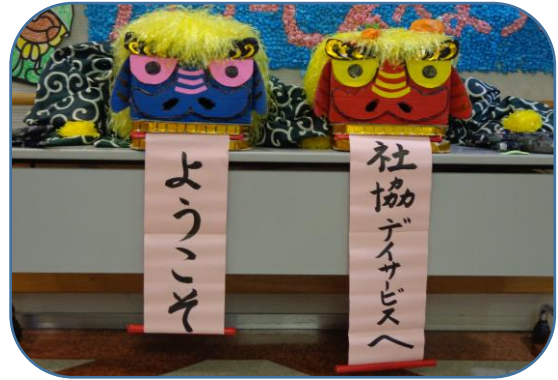 ようこそ
社協デイサービスへ